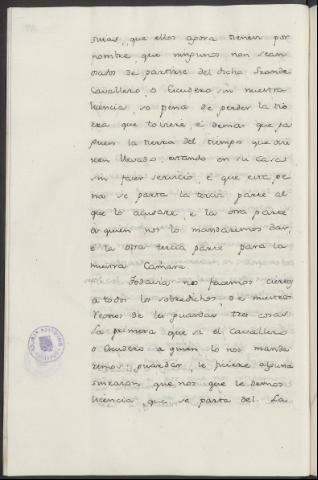 suias, que ellos agora tienen por
nombre, que ningunos non sean
osados de partirse del dicho Grande
Cavallero, o Escudero, sin nuestra
licencia, so pena de perder la tie
rra que toviere, e demas que pa
guen la tierra del tiempo que ovie
ren llevado, estando en su casa
sin facer servicio, e que esta pe
na se parta la tercia parte al
que lo acusare, e la otra parte
a quien nos lo mandaremos dar,
e la otra tercia parte para la
nuestra Camara.
Todavia nos facemos ciertos
a todos los sobredichos, de nuestros
Regnos de les guardar tres cosas
La primera que si el Cavallero
o Escudero a quien lo nos manda
remos guardar, le ficiere alguna
sinrazon que nos que le demos
licencia que se parta del. La